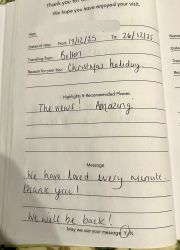 Thank you for
We hope you have enjoyed your visit.
Name
Dates of stay: From 19/12/25 To 26/12/25
Travelling from
Reason for your trip Christmas holiday
Highlights & Recommended Places
The views! Amazing
Message
We have loved every minute.
thank you!
We will be back!
May we use your message Y/N